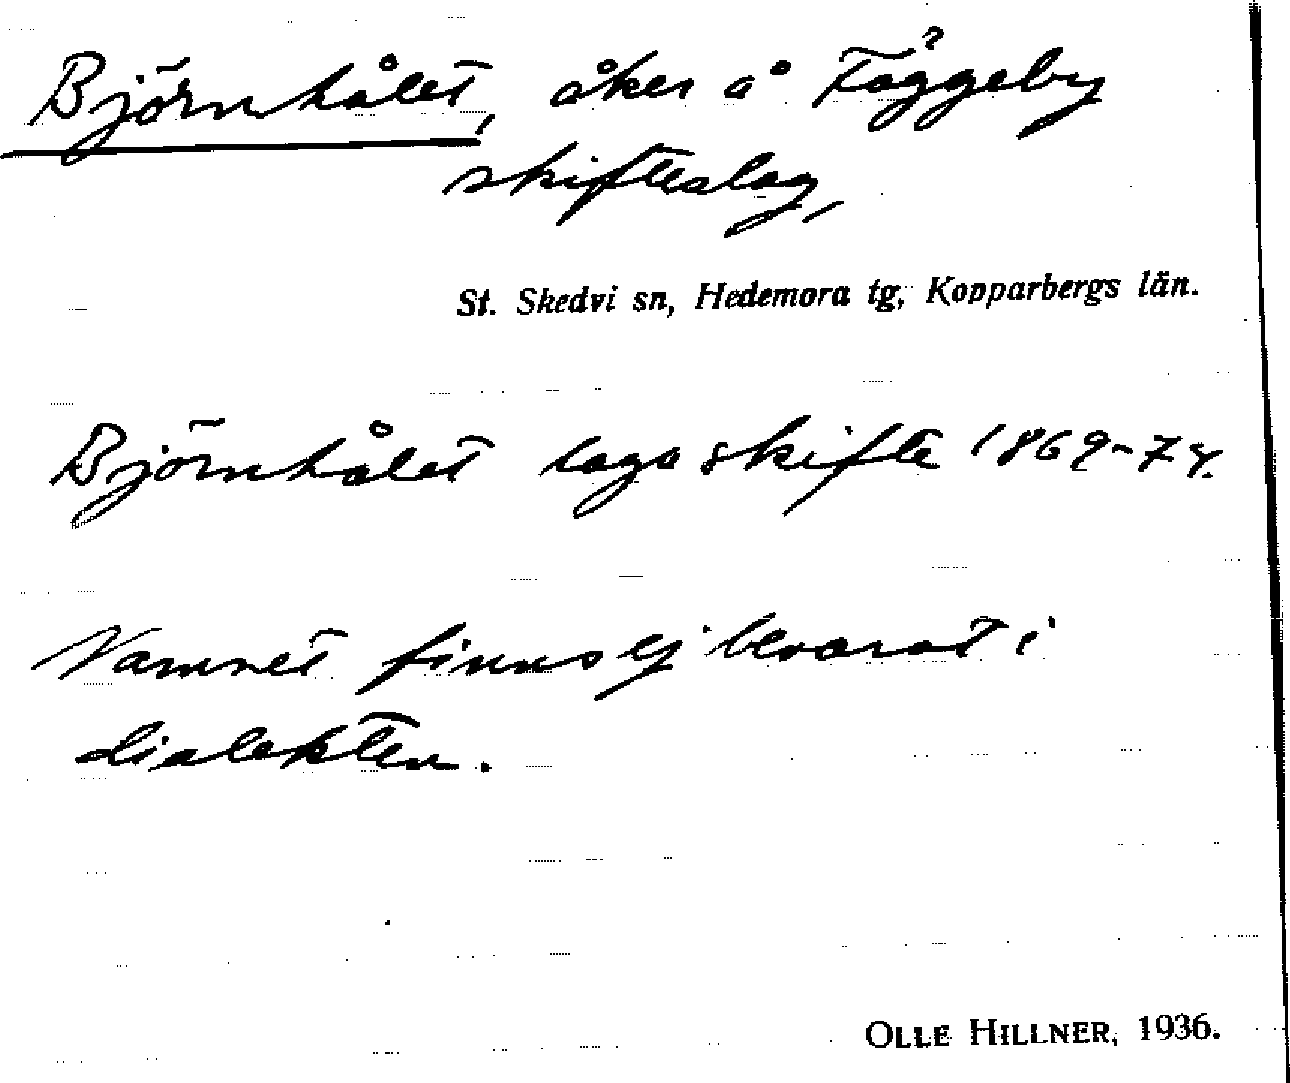 Björnhålet, åker å Fäggeby
skifteslag,
St. Skedvi sn, Hedemora tg, Kopparbergs län.
Björnhålet laga skifte 1869-74.
Namnet finns ej bevarat i
dialekten.
OLLE HILLNER, 1936.